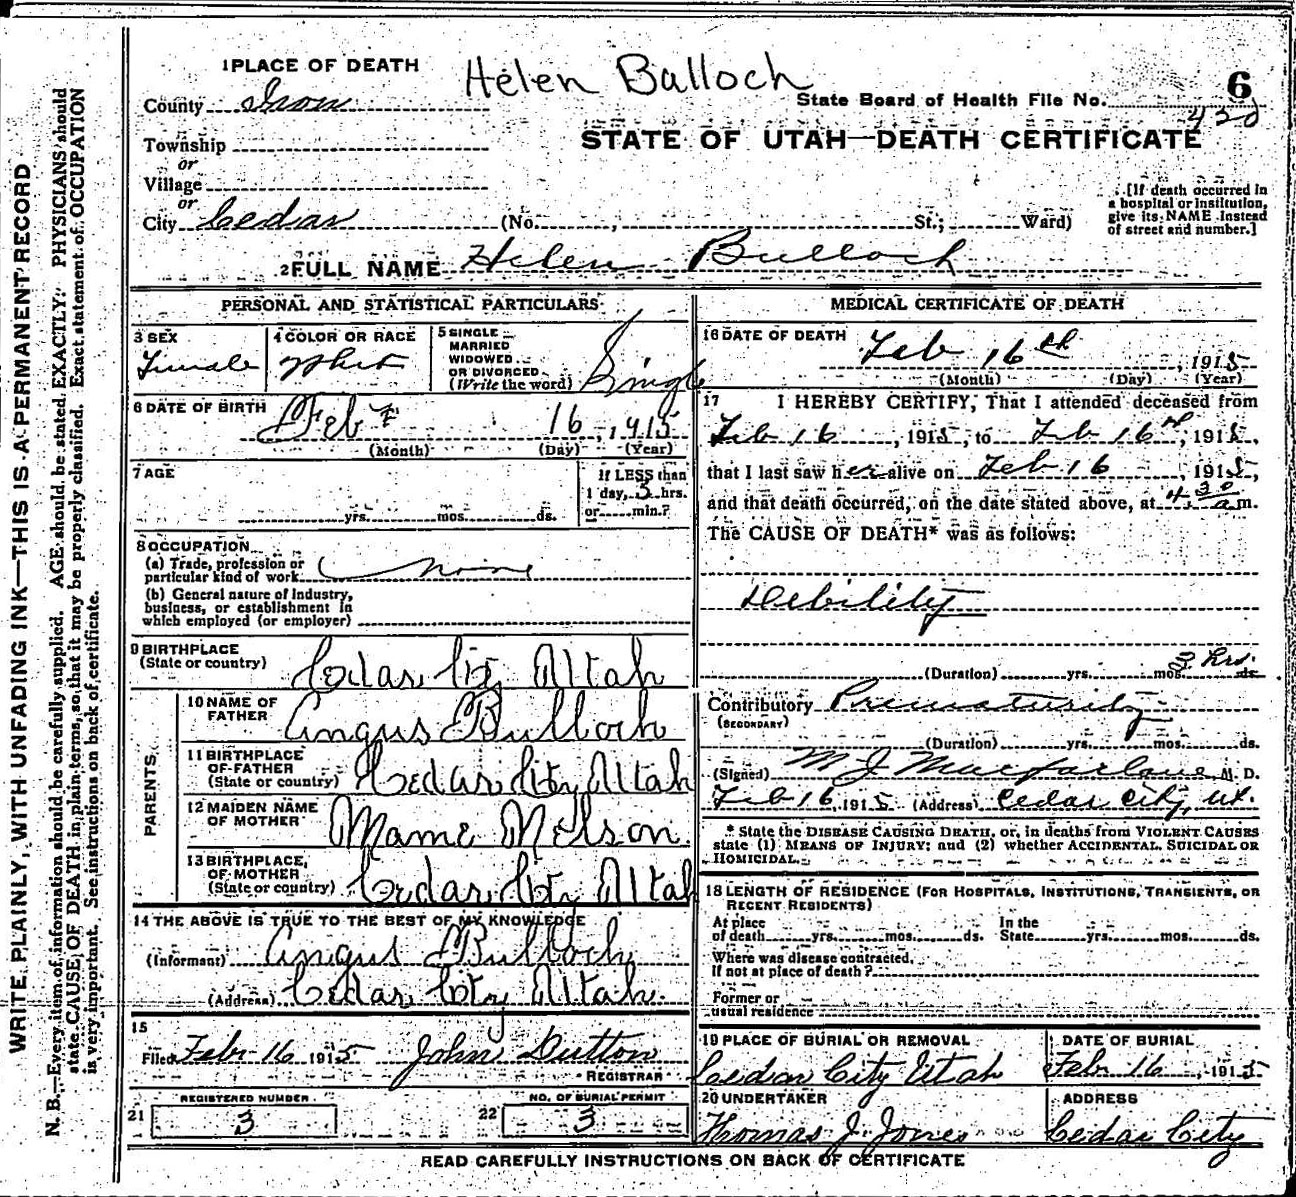 WRITE PLAINLY, WITH UNFADING INK—THIS IS A PERMANENT RECORD
N. B.—Every item of information should be carefully supplied. AGE should be stated EXACTLY. PHYSICIANS should
state CAUSE OF DEATH in plain terms, so that it may be properly classified. Exact statement of OCCUPATION
is very important. See instructions on back of certificate.
Helen Balloch
1 PLACE OF DEATH
County Iron
State Board of Health File No. 6
420
STATE OF UTAH—DEATH CERTIFICATE
Township
or
Village
or
City Cedar (No. , St.; Ward)
[If death occurred in
a hospital or institution,
give its NAME instead
of street and number.]
2 FULL NAME Helen Bulloch
PERSONAL AND STATISTICAL PARTICULARS
3 SEX
Female
4 COLOR OR RACE
White
5 SINGLE
MARRIED
WIDOWED
OR DIVORCED
(Write the word)
Single
6 DATE OF BIRTH
Feb 16, 1915
(Month) (Day) (Year)
7 AGE
yrs. mos. ds.
If LESS than
1 day, 3 hrs.
or min.?
8 OCCUPATION
(a) Trade, profession or
particular kind of work None
(b) General nature of industry,
business, or establishment in
which employed (or employer)
9 BIRTHPLACE
(State or country) Cedar City Utah
PARENTS
10 NAME OF
FATHER Angus Bulloch
11 BIRTHPLACE
OF FATHER
(State or country) Cedar City Utah
12 MAIDEN NAME
OF MOTHER Mame Nelson
13 BIRTHPLACE
OF MOTHER
(State or country) Cedar City Utah
14 THE ABOVE IS TRUE TO THE BEST OF MY KNOWLEDGE
(Informant) Angus Bulloch
(Address) Cedar City Utah.
15
Filed Febr 16 1915 John Dutton
REGISTRAR
REGISTERED NUMBER
21 3
NO. OF BURIAL PERMIT
22 3
MEDICAL CERTIFICATE OF DEATH
16 DATE OF DEATH
Feb 16th, 1915
(Month) (Day) (Year)
17 I HEREBY CERTIFY, That I attended deceased from
Feb 16, 1915, to Feb 16th, 1915,
that I last saw her alive on Feb 16, 1915,
and that death occurred, on the date stated above, at 4 30 a m.
The CAUSE OF DEATH* was as follows:
Debility
(Duration) yrs. mos. 3 hrs. ds.
Contributory Prematurity
(SECONDARY)
(Duration) yrs. mos. ds.
(Signed) M J Macfarlane M. D.
Feb 16, 1915 (Address) Cedar City, Ut.
* State the DISEASE CAUSING DEATH, or, in deaths from VIOLENT CAUSES
state (1) MEANS OF INJURY; and (2) whether ACCIDENTAL, SUICIDAL OR
HOMICIDAL.
18 LENGTH OF RESIDENCE (FOR HOSPITALS, INSTITUTIONS, TRANSIENTS, OR
RECENT RESIDENTS)
At place
of death yrs. mos. ds.
In the
State yrs. mos. ds.
Where was disease contracted,
if not at place of death?
Former or
usual residence
19 PLACE OF BURIAL OR REMOVAL
Cedar City Utah
DATE OF BURIAL
Febr 16, 1915
20 UNDERTAKER
Thomas J. Jones
ADDRESS
Cedar City
READ CAREFULLY INSTRUCTIONS ON BACK OF CERTIFICATE